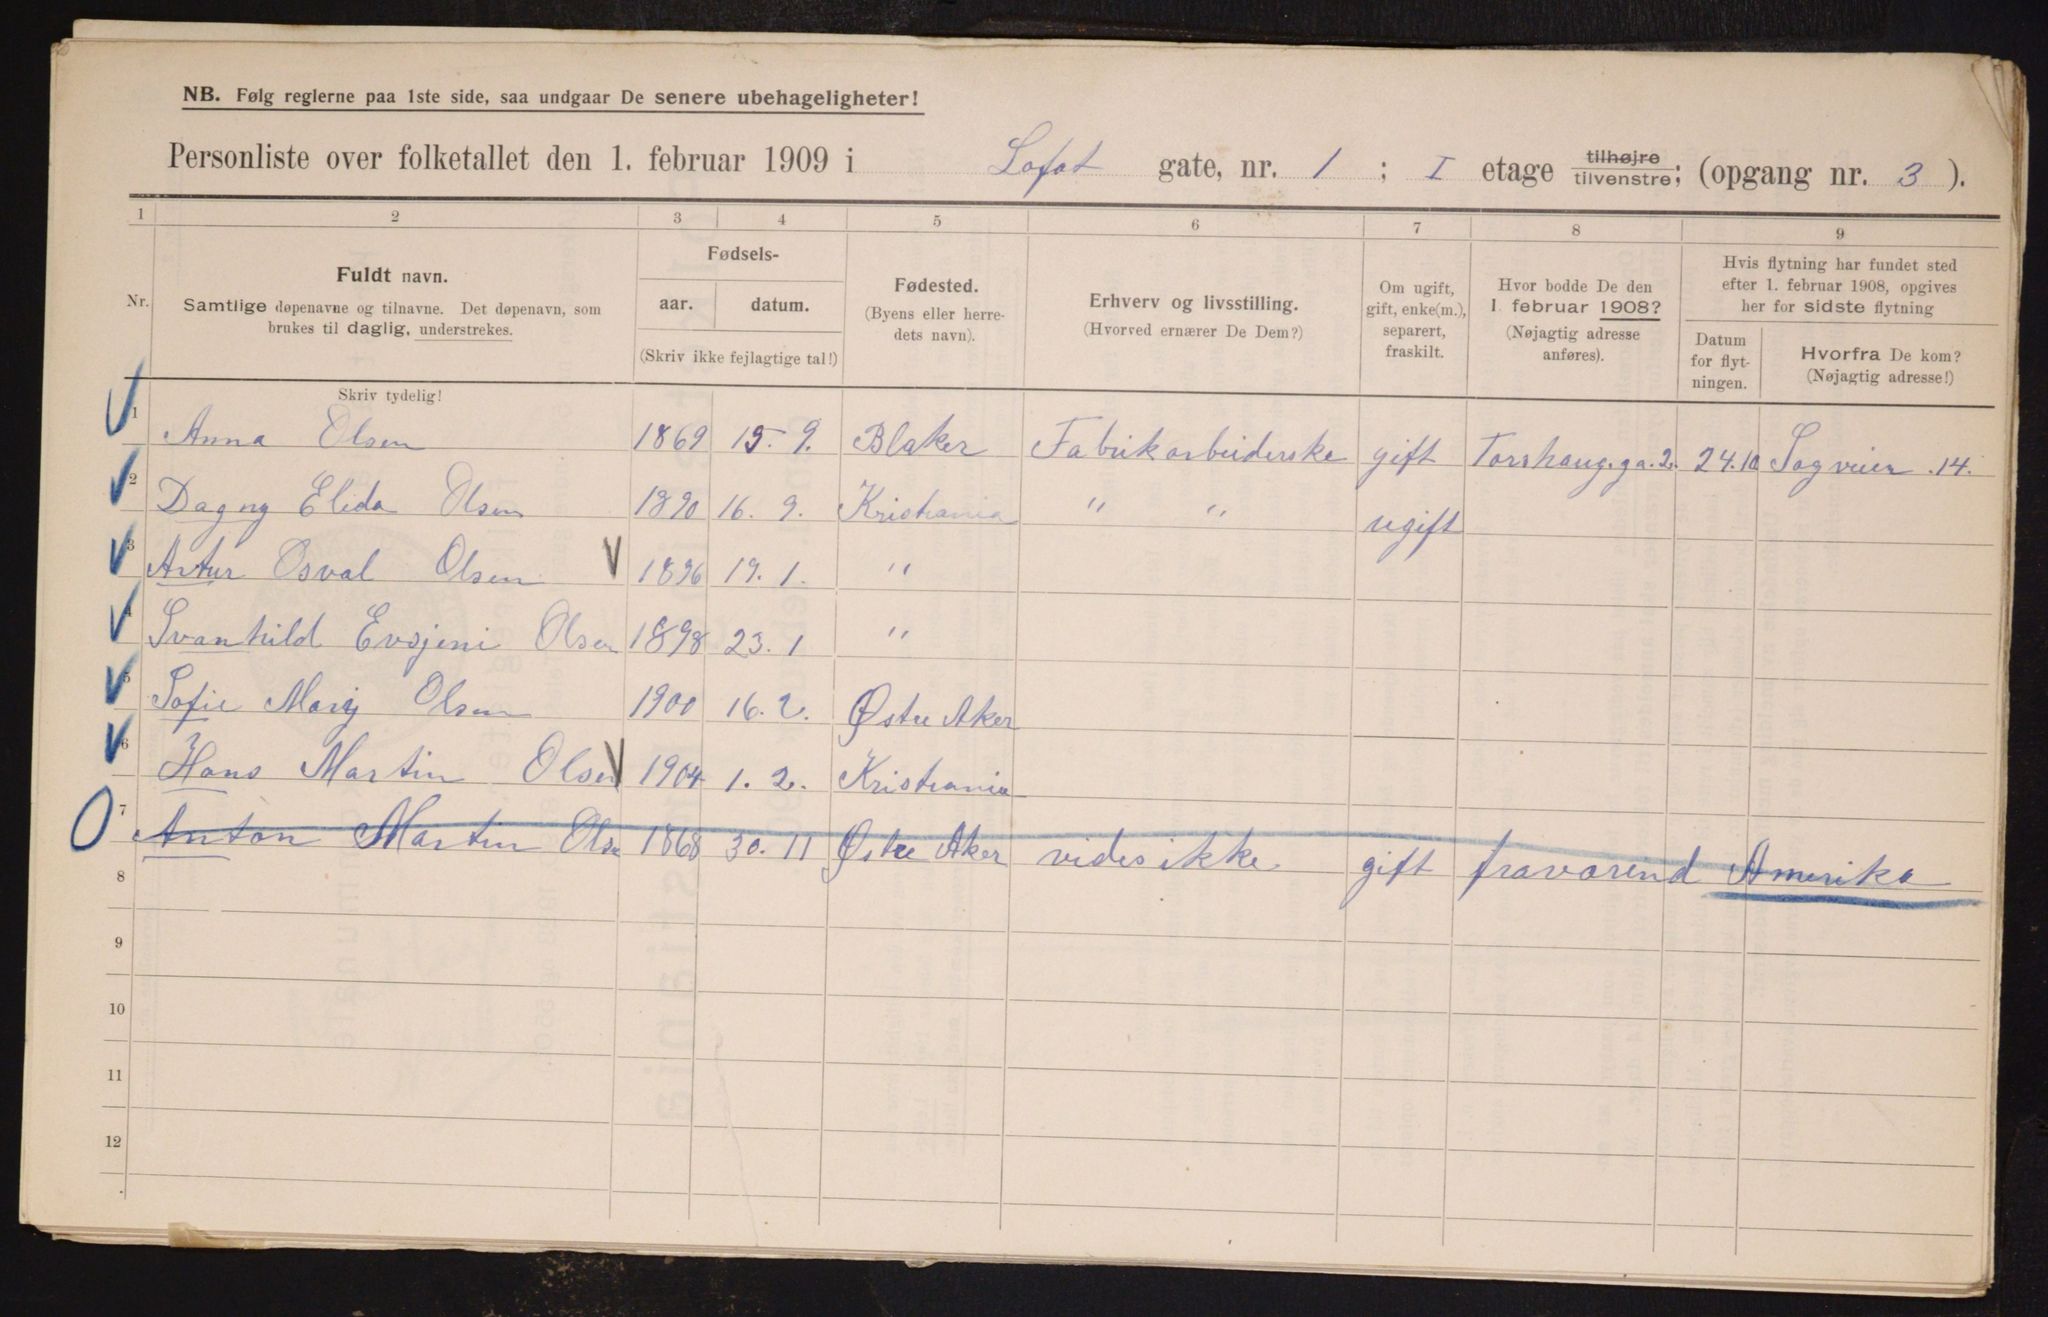 NB. Følg reglerne paa 1ste side, saa undgaar De senere ubehageligheter!
Personliste over folketallet den 1. februar 1909 i Lofot gate, nr. 1 ; I etage tilhøjre tilvenstre; (opgang nr. 3 ).
1 2 3 4 5 6 7 8 9
Nr. Fuldt navn. Samtlige døpenavne og tilnavne. Det døpenavn, som brukes til daglig, understrekes.
Fødsels- aar. datum. (Skriv ikke fejlagtige tal!)
Fødested. (Byens eller herredets navn).
Erhverv og livsstilling. (Hvorved ernærer De Dem?)
Om ugift, gift, enke(m.), separert, fraskilt.
Hvor bodde De den 1. februar 1908? (Nøjagtig adresse anføres).
Hvis flytning har fundet sted efter 1. februar 1908, opgives her for sidste flytning
Datum for flytningen. Hvorfra De kom? (Nøjagtig adresse!)
Skriv tydelig!
1 Anna Olsen 1869 15. 9. Blaker Fabrikarbeiderske gift Torshaug.ga.2. 24.10 Sagveien .14.
2 Dagny Elida Olsen 1890 16. 9. Kristiania " " ugift
3 Artur Osval Olsen V 1896 19. 1. "
4 Svanhild Evsjeni Olsen 1898 23. 1 "
5 Sofie Marij Olsen 1900 16. 2. Østre Aker
6 Hans Martin Olsen V 1904 1. 2. Kristiania
7 Anton Martin Olsn 1868 30. 11 Østre Aker vides ikke gift fraværend Amerika
8
9
10
11
12